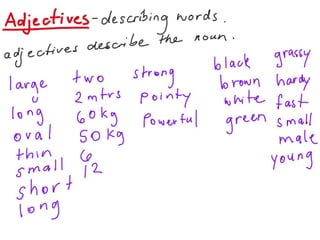 Adjectives - describing words.
adjectives describe the noun.
large
long
oval
thin
small
short
long
two
2 mtrs
60kg
50 kg
6
12
strong
pointy
Powerful
black
brown
white
green
grassy
hardy
fast
small
male
young